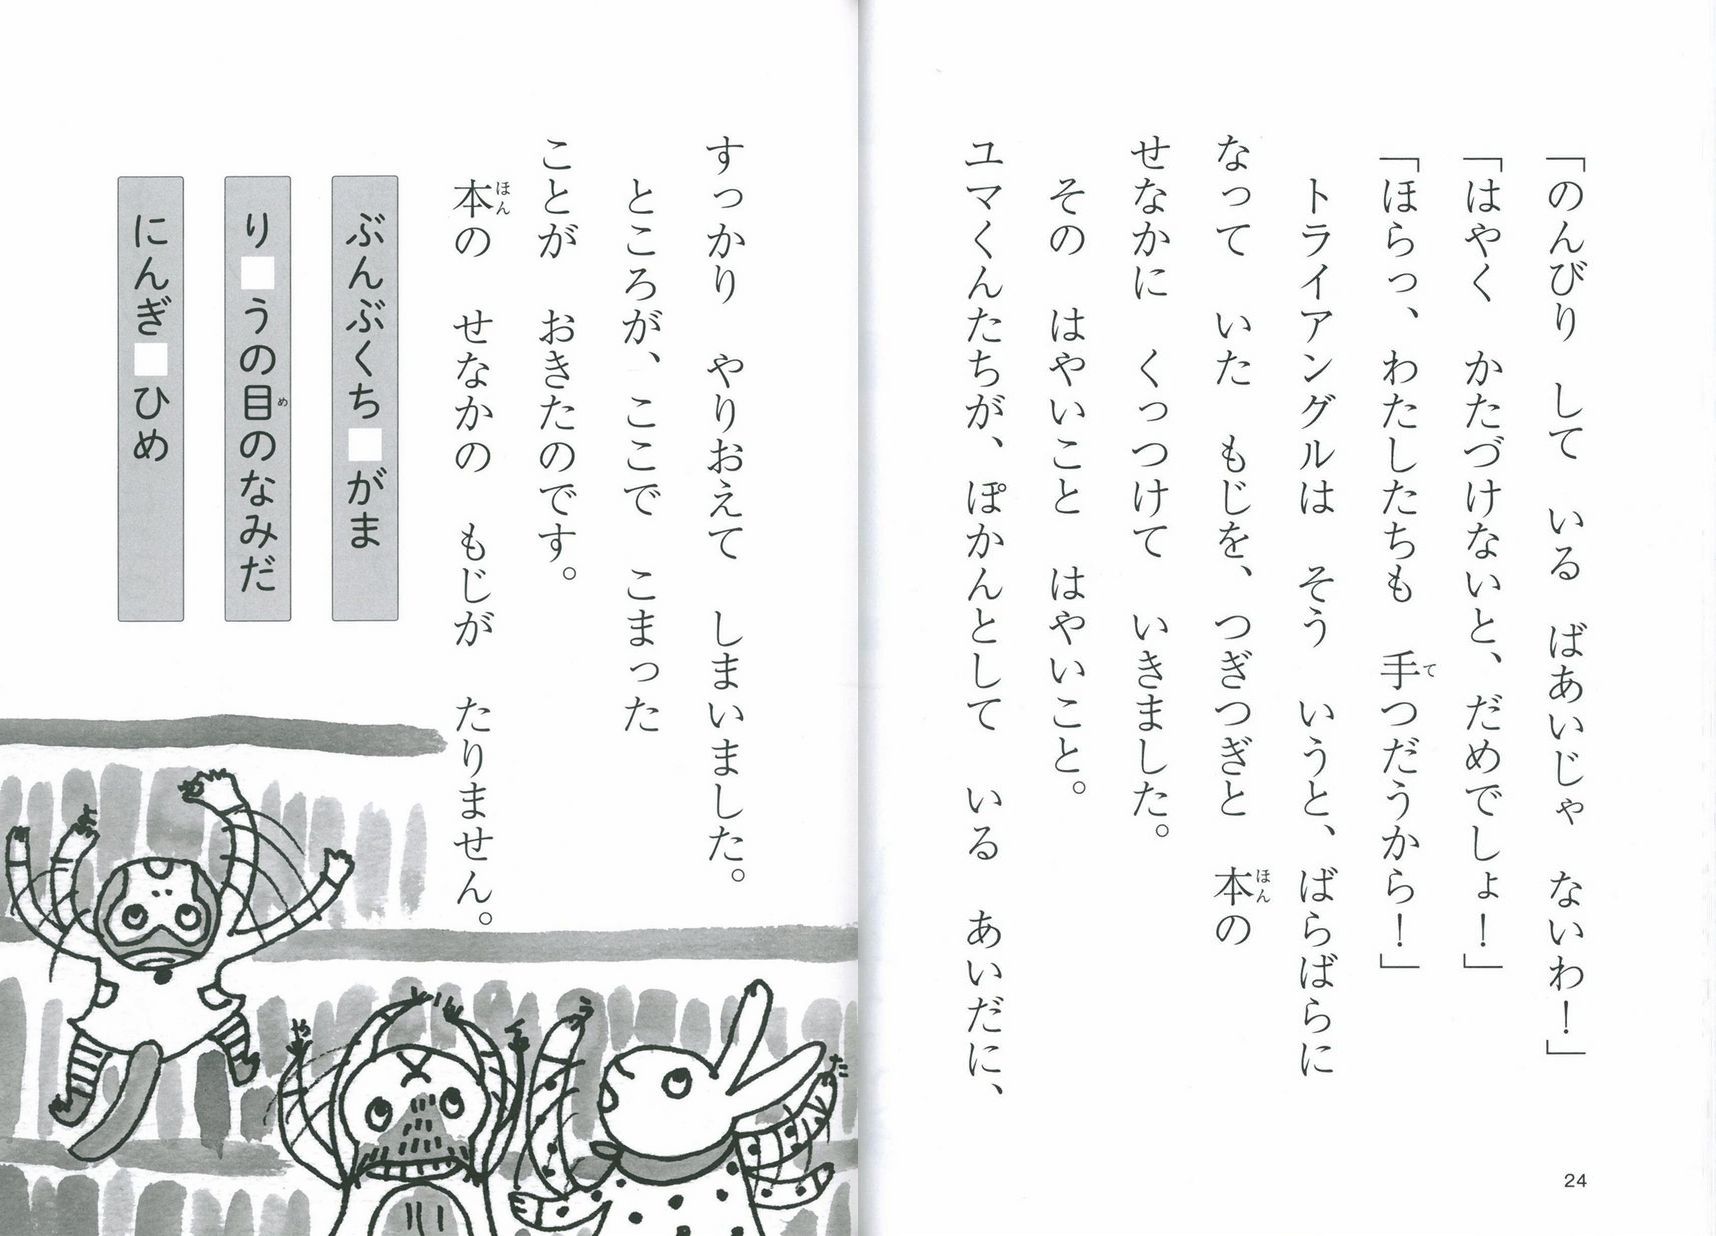 「のんびり して いる ばあいじゃ ないわ！」
「はやく かたづけないと、だめでしょ！」
「ほらっ、わたしたちも 手つだうから！」
て
トライアングルは そう いうと、ばらばらに
なって いた もじを、つぎつぎと 本の
ほん
せなかに くっつけて いきました。
その はやいこと はやいこと。
ユマくんたちが、ぽかんとして いる あいだに、
24
すっかり やりおえて しまいました。
ところが、ここで こまった
ことが おきたのです。
本の せなかの もじが たりません。
ほん
ぶんぶくち□がま
り□うの目のなみだ
め
にんぎ□ひめ
よ
や
う
た